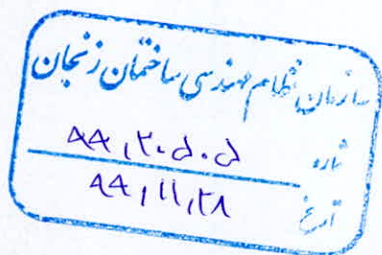 سازمان نظام مهندسی ساختمان زنجان
شماره ۹۹,۲۰۵۰۵
تاریخ ۹۹,۱۱,۲۸